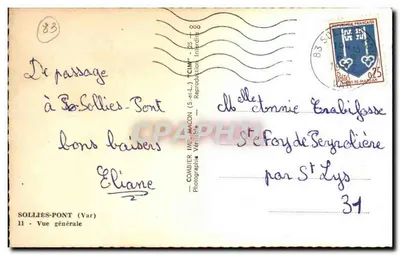 83
De passage
à Sollies-Pont
bons baisers
Eliane
SOLLIÈS-PONT (Var)
11 - Vue générale
COMBIER IMP. MACON (S.-et-L.) "CIM"
Photographie Véritable - Reproduction Interdite
REPUBLIQUE FRANÇAISE
0,25
83 S
Melle Annie Trabifosse
Ste Foy de Peyrolière
par St Lys
31
CPARAMA